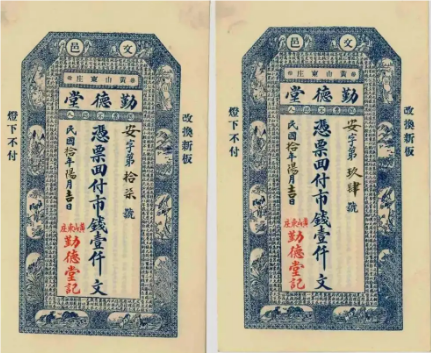 文邑
黄山東庄
勤德堂
改換新板
安字第拾柒號
憑票囬付市錢壹仟文
民國拾年陽月吉日
黄山東庄
勤德堂記
燈下不付
文邑
黄山東庄
勤德堂
改換新板
安字第玖肆號
憑票囬付市錢壹仟文
民國拾年陽月吉日
黄山東庄
勤德堂記
燈下不付